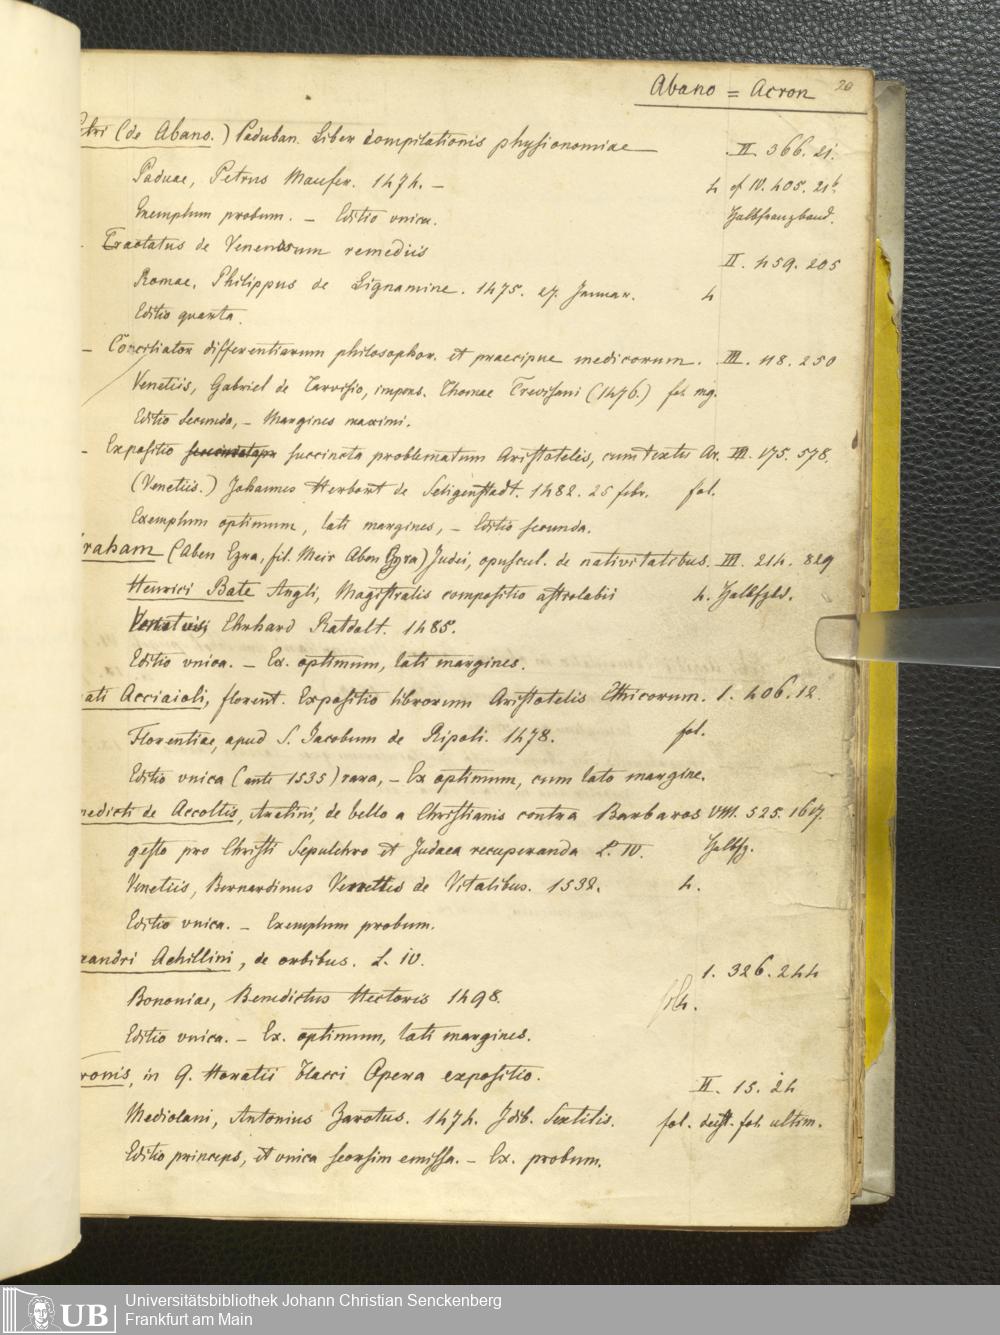 Abano = Acron 20
Petri (de Abano.) Paduban. Liber compilationis physionomiae — II. 366. 21.
Paduae, Petrus Maufer. 1474. — 4 cf IV. 405. 21b.
Exemplum probum. — Editio unica. Halbfranzband.
Tractatus de Venenorum remediis II. 459. 205
Romae, Philippus de Lignamine. 1475. 27. Januar. 4
Editio quarta.
— Conciliator differentiarum philosophor. et praecipue medicorum. III. 118. 250
Venetiis, Gabriel de Tarvisio, impens. Thomae Trevisani (1476.) fol. mg.
Editio secunda, — Margines maximi.
— Expositio succincta problematum Aristotelis, cum textu Ar. III. 175. 578.
(Venetiis.) Johannes Herbort de Seligenstadt. 1482. 25 febr. fol.
Exemplum optimum, lati margines, — Editio secunda.
raham (Aben Ezra, fil. Meir Aben Ezra) Judei, opuscul. de nativitatibus. III. 214. 829
Henrici Bate Angli, Magistralis compositio astrolabii 4. Halbfzbd.
Venetiis, Ehrhard Ratdolt. 1485.
Editio unica. — Ex. optimum, lati margines.
ati Acciaioli, florent. Expositio librorum Aristotelis Ethicorum. I. 406. 12
Florentiae, apud S. Jacobum de Ripoli. 1478. fol.
Editio unica (ante 1535) rara, — Ex optimum, cum lato margine.
nedicti de Accoltis, Aretini, de bello a Christianis contra Barbaros VIII. 525. 1617.
gesto pro Christi Sepulchro et Judaea recuperanda L. IV. Halbfz.
Venetiis, Bernardinus Venettus de Vitalibus. 1532. 4.
Editio unica. — Exemplum probum.
xandri Achillini, de orbibus. L. IV. I. 326. 244
Bononiae, Benedictus Hectoris 1498. fol.
Editio unica. — Ex. optimum, lati margines.
ronis, in Q. Horatii Flacci Opera expositio. II. 15. 24
Mediolani, Antonius Zarotus. 1474. Idib. Sextilis. fol. deest. fol. ultim.
Editio princeps, et unica seorsim emissa. — Ex. probum.
UB Universitätsbibliothek Johann Christian Senckenberg
Frankfurt am Main